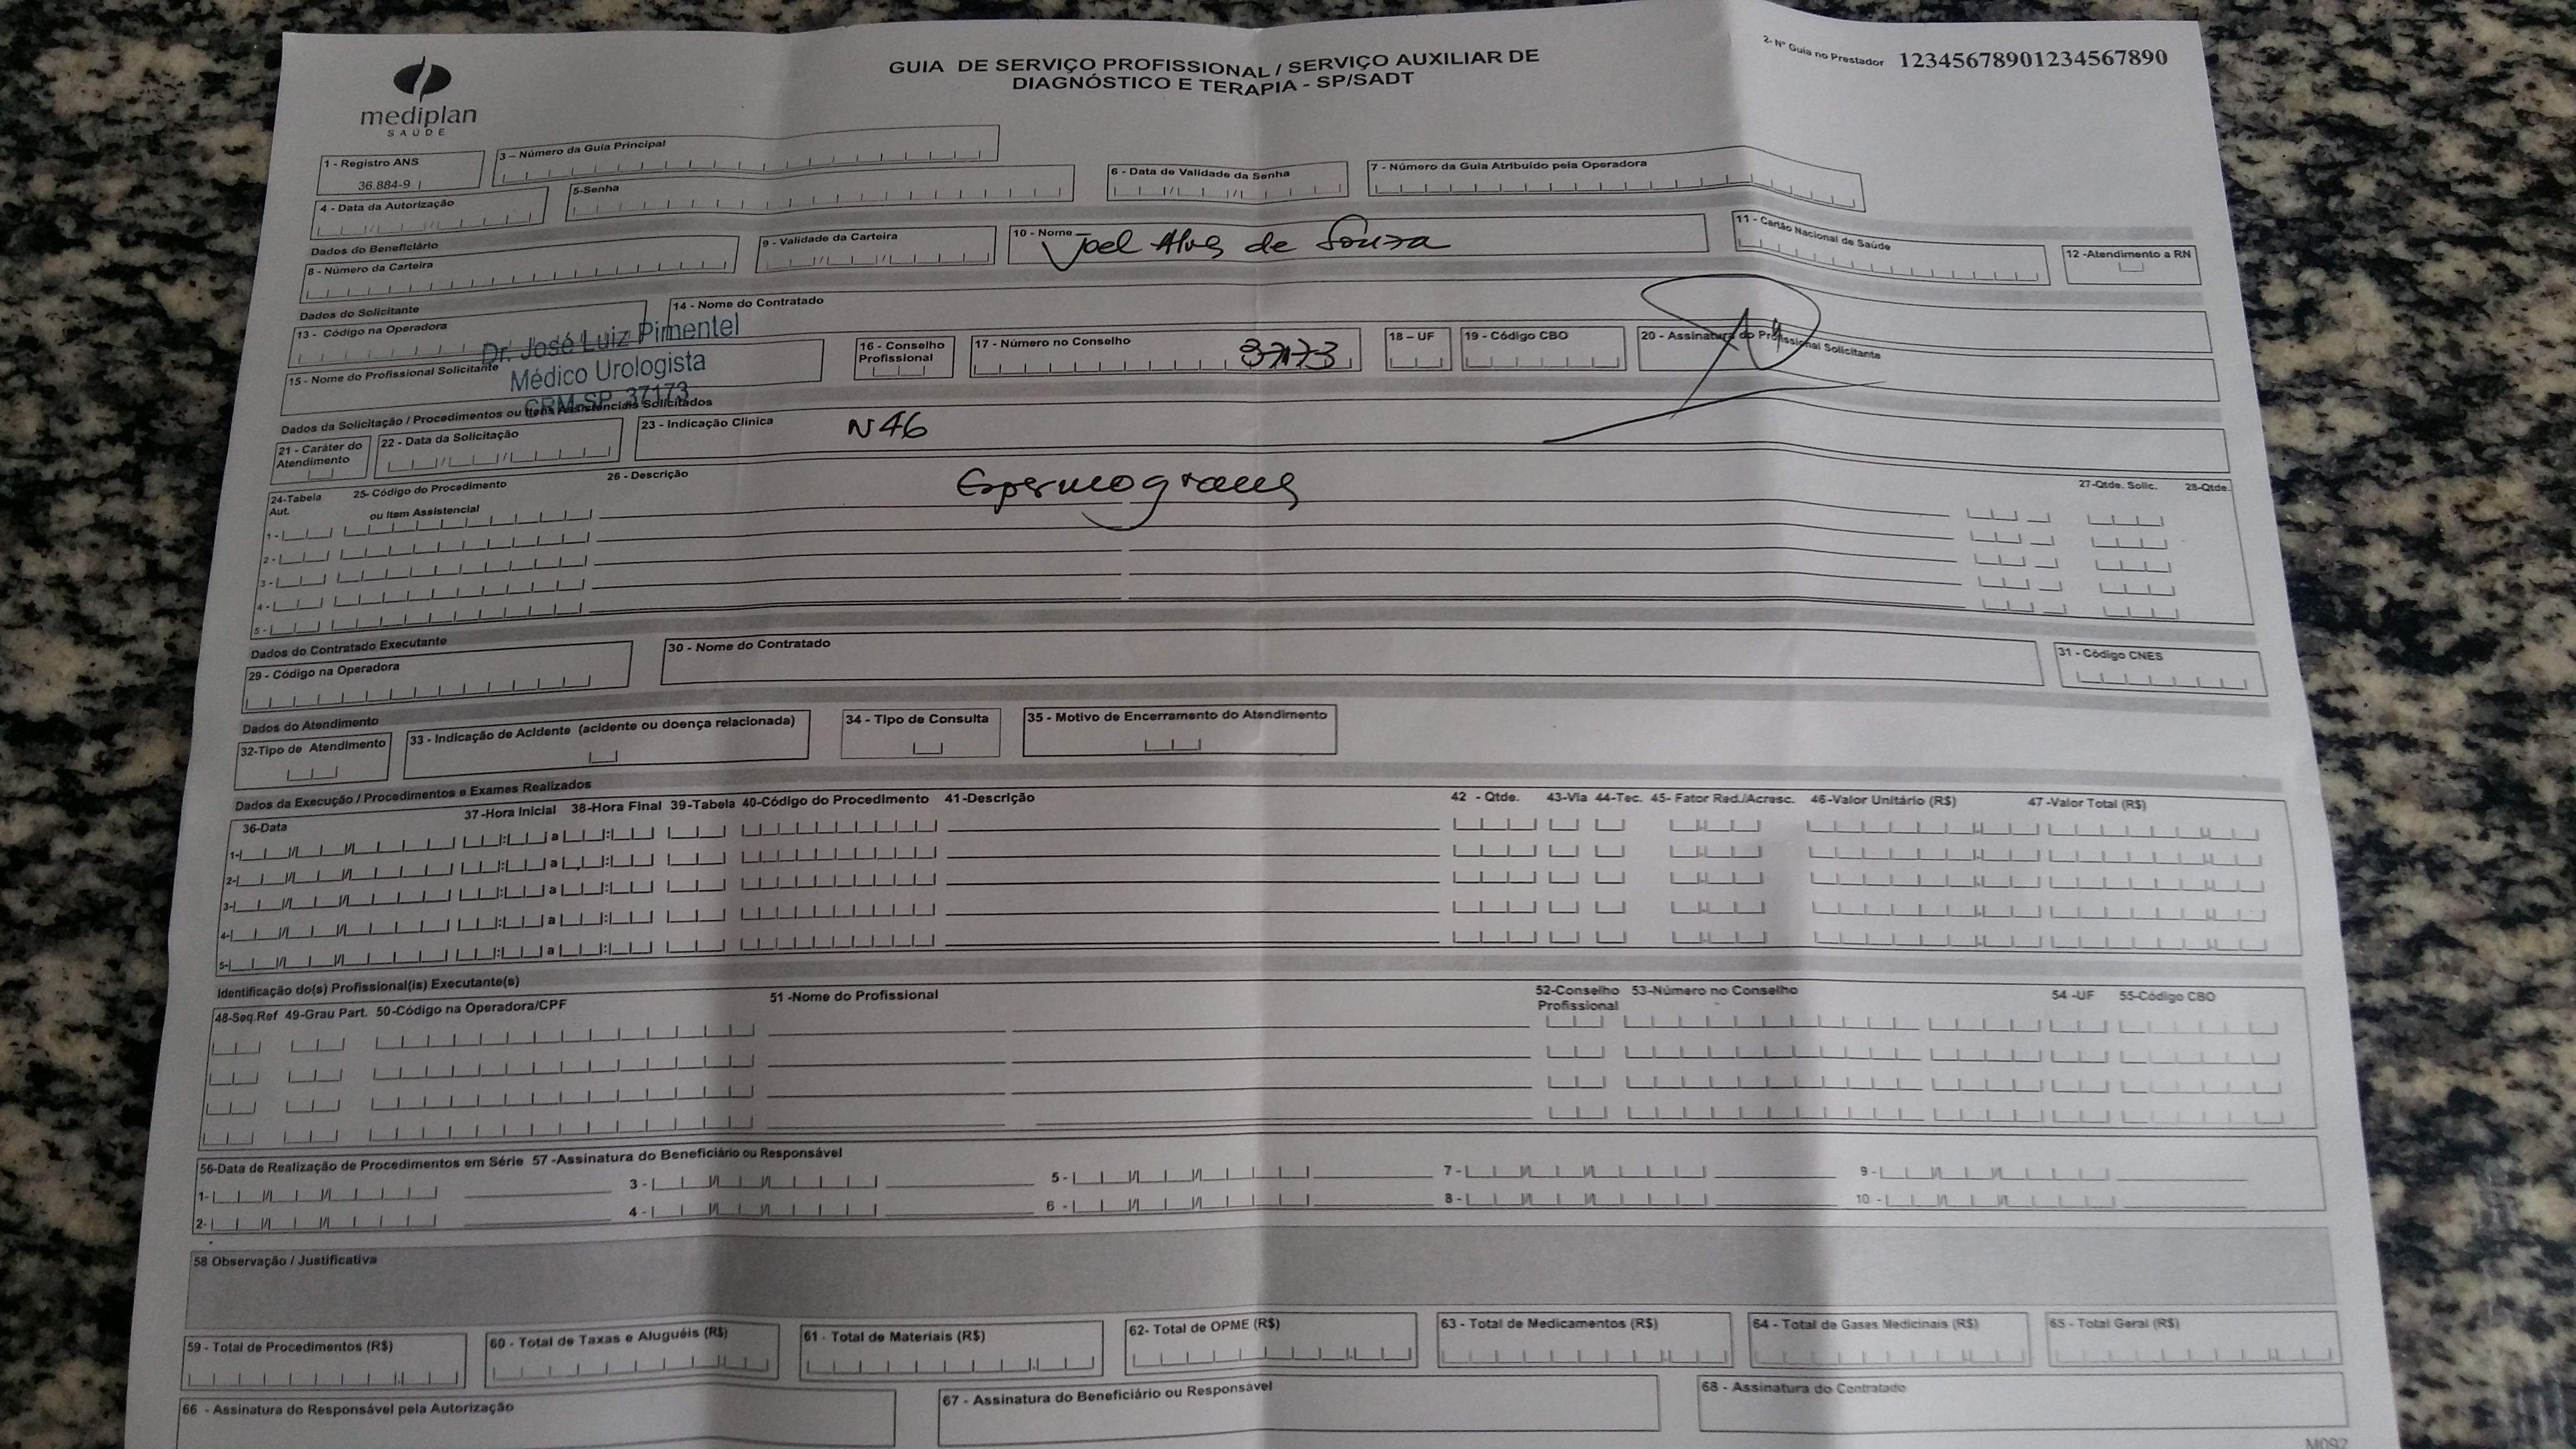 mediplan
SAÚDE
GUIA DE SERVIÇO PROFISSIONAL / SERVIÇO AUXILIAR DE
DIAGNÓSTICO E TERAPIA - SP/SADT
2- Nº Guia no Prestador 12345678901234567890
1 - Registro ANS
36.884-9
3 – Número da Guia Principal
4 - Data da Autorização
5-Senha
6 - Data de Validade da Senha
7 - Número da Guia Atribuido pela Operadora
Dados do Beneficiário
8 - Número da Carteira
9 - Validade da Carteira
10 - Nome Joel Alves de Souza
11 - Cartão Nacional de Saúde
12 -Atendimento a RN
Dados do Solicitante
13 - Código na Operadora
14 - Nome do Contratado
Dr. José Luiz Pimentel
Médico Urologista
CRM-SP 37173
15 - Nome do Profissional Solicitante
16 - Conselho
Profissional
17 - Número no Conselho 37173
18 – UF
19 - Código CBO
20 - Assinatura do Profissional Solicitante
Dados da Solicitação / Procedimentos ou Itens Assistenciais Solicitados
21 - Caráter do
Atendimento
22 - Data da Solicitação
23 - Indicação Clinica N46
24-Tabela
Aut.
25- Código do Procedimento
ou Item Assistencial
26 - Descrição
27-Qtde. Solic.
28-Qtde.
Espermograma
1 -
2 -
3 -
4 -
5 -
Dados do Contratado Executante
29 - Código na Operadora
30 - Nome do Contratado
31 - Código CNES
Dados do Atendimento
32-Tipo de Atendimento
33 - Indicação de Acidente (acidente ou doença relacionada)
34 - Tipo de Consulta
35 - Motivo de Encerramento do Atendimento
Dados da Execução / Procedimentos e Exames Realizados
36-Data 37-Hora Inicial 38-Hora Final 39-Tabela 40-Código do Procedimento 41-Descrição 42 - Qtde. 43-Via 44-Tec. 45- Fator Red./Acresc. 46-Valor Unitário (R$) 47 -Valor Total (R$)
1- a
2- a
3- a
4- a
5- a
Identificação do(s) Profissional(is) Executante(s)
48-Seq.Ref 49-Grau Part. 50-Código na Operadora/CPF 51 -Nome do Profissional 52-Conselho
Profissional 53-Número no Conselho 54 -UF 55-Código CBO
56-Data de Realização de Procedimentos em Série 57 -Assinatura do Beneficiário ou Responsável
1- 3 - 5 - 7 - 9 -
2- 4 - 6 - 8 - 10 -
58 Observação / Justificativa
59 - Total de Procedimentos (R$)
60 - Total de Taxas e Aluguéis (R$)
61 - Total de Materiais (R$)
62- Total de OPME (R$)
63 - Total de Medicamentos (R$)
64 - Total de Gases Medicinais (R$)
65 - Total Geral (R$)
66 - Assinatura do Responsável pela Autorização
67 - Assinatura do Beneficiário ou Responsável
68 - Assinatura do Contratado
M092